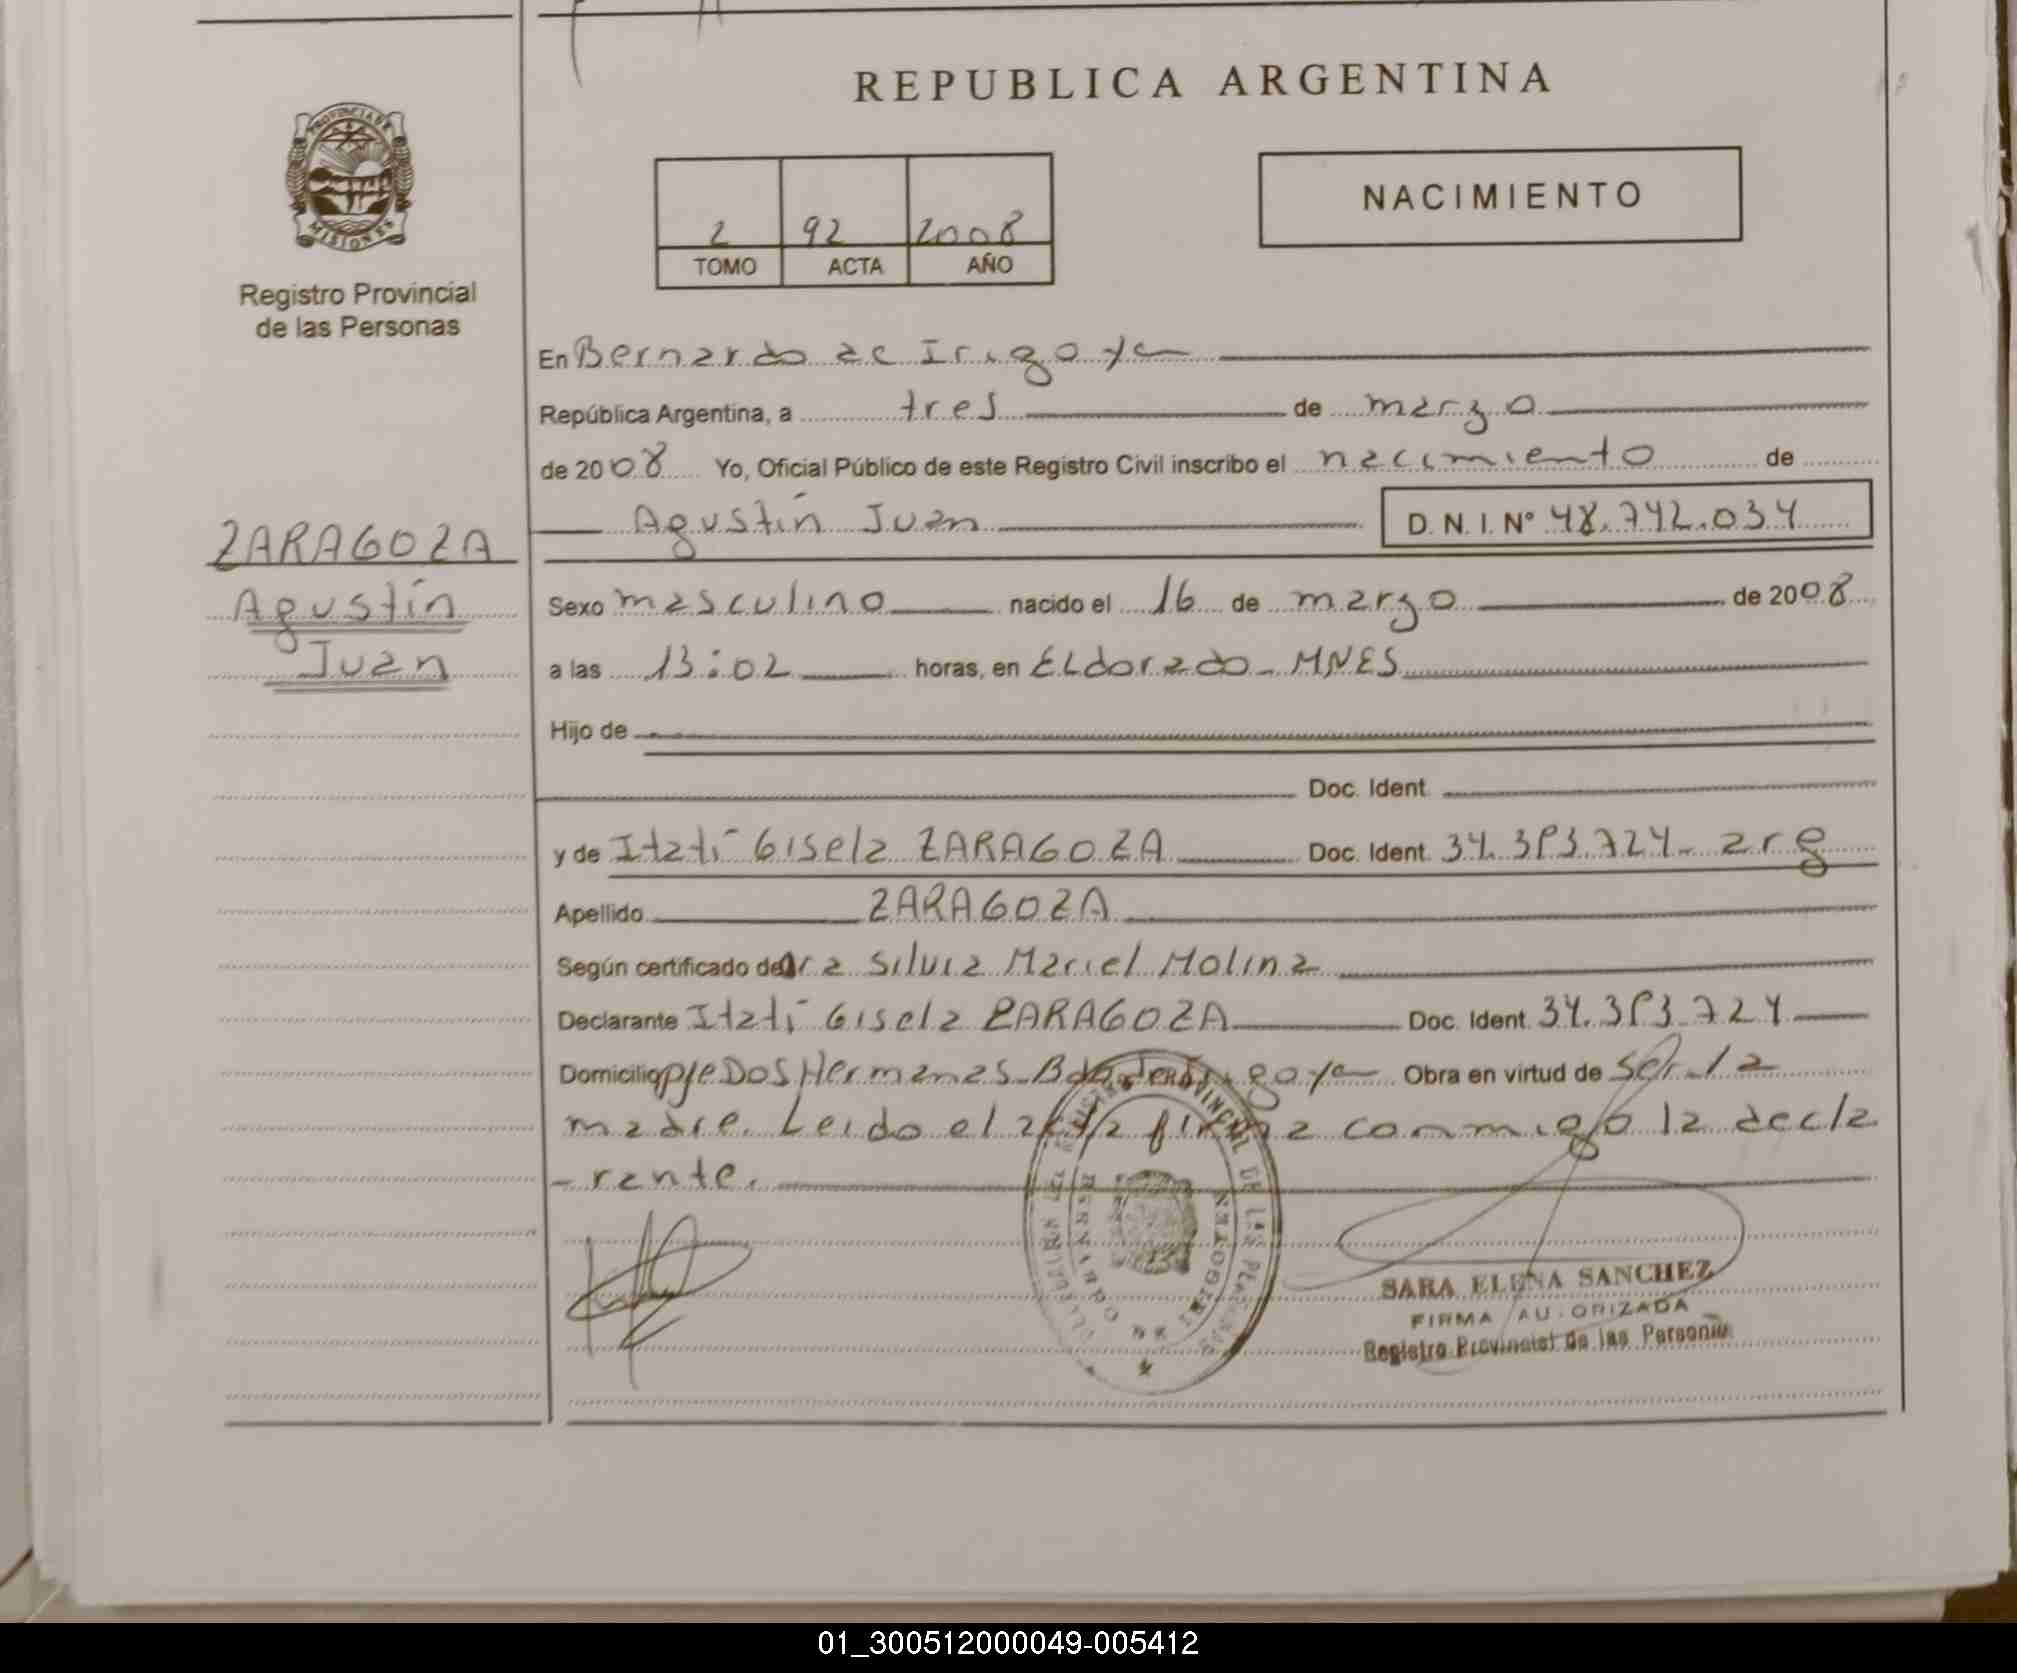 REPUBLICA ARGENTINA
PROVINCIA DE
MISIONES
Registro Provincial
de las Personas
2 92 2008
TOMO ACTA AÑO
NACIMIENTO
En Bernardo de Irigoyen
República Argentina, a tres de marzo
de 2008 Yo, Oficial Público de este Registro Civil inscribo el nacimiento de
Agustín Juan D.N.I. Nº 48.742.034
ZARAGOZA
Agustín
Juan
Sexo masculino nacido el 16 de marzo de 2008
a las 13:02 horas, en ELdorado - MNES
Hijo de
Doc. Ident.
y de Itatí Gisela ZARAGOZA Doc. Ident. 34.393.724 - arg
Apellido ZARAGOZA
Según certificado de Dra Silvia Mariel Molina
Declarante Itatí Gisela ZARAGOZA Doc. Ident. 34.393.724
Domicilio pje Dos Hermanas - Bdo de Irigoyen Obra en virtud de ser la
madre. Leido el acta firma conmigo la decla
- rante.
REGISTRO PROVINCIAL DE LAS PERSONAS
BERNARDO DE IRIGOYEN
SARA ELENA SANCHEZ
FIRMA AUTORIZADA
Registro Provincial de las Personas
01_300512000049-005412